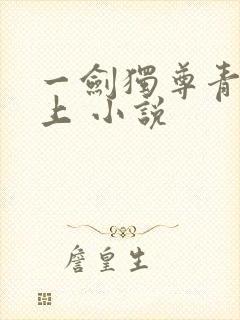 一劍獨尊青
上 小說
詹皇生